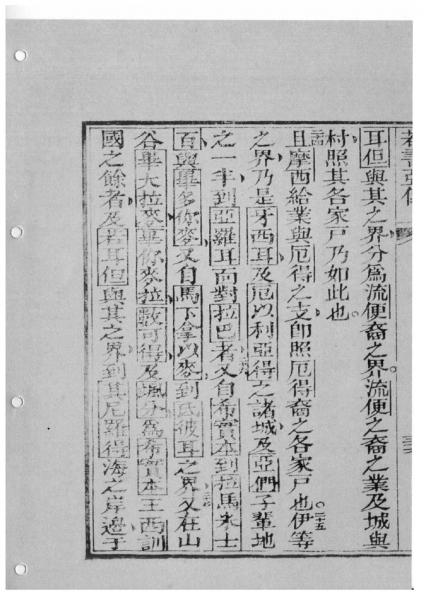 耳但與其之界分為流便裔之界流便之裔之業及城與
村照其各家戶乃如此也
且摩西給業與厄得之支即照厄得裔之各家戶也二十五伊等
之界乃是牙西耳及厄以利亞得之諸城及亞們子輩地
之一半到亞羅耳面對拉巴者又自希實本到拉馬米士
百與畢多你麥又自馬下拿以麥到氐彼耳之界又在山
谷畢大拉麥畢你麥拉數可得及颯分為希實本王西訓
國之餘者及若耳但與其之界到其尼羅得海之岸邊于